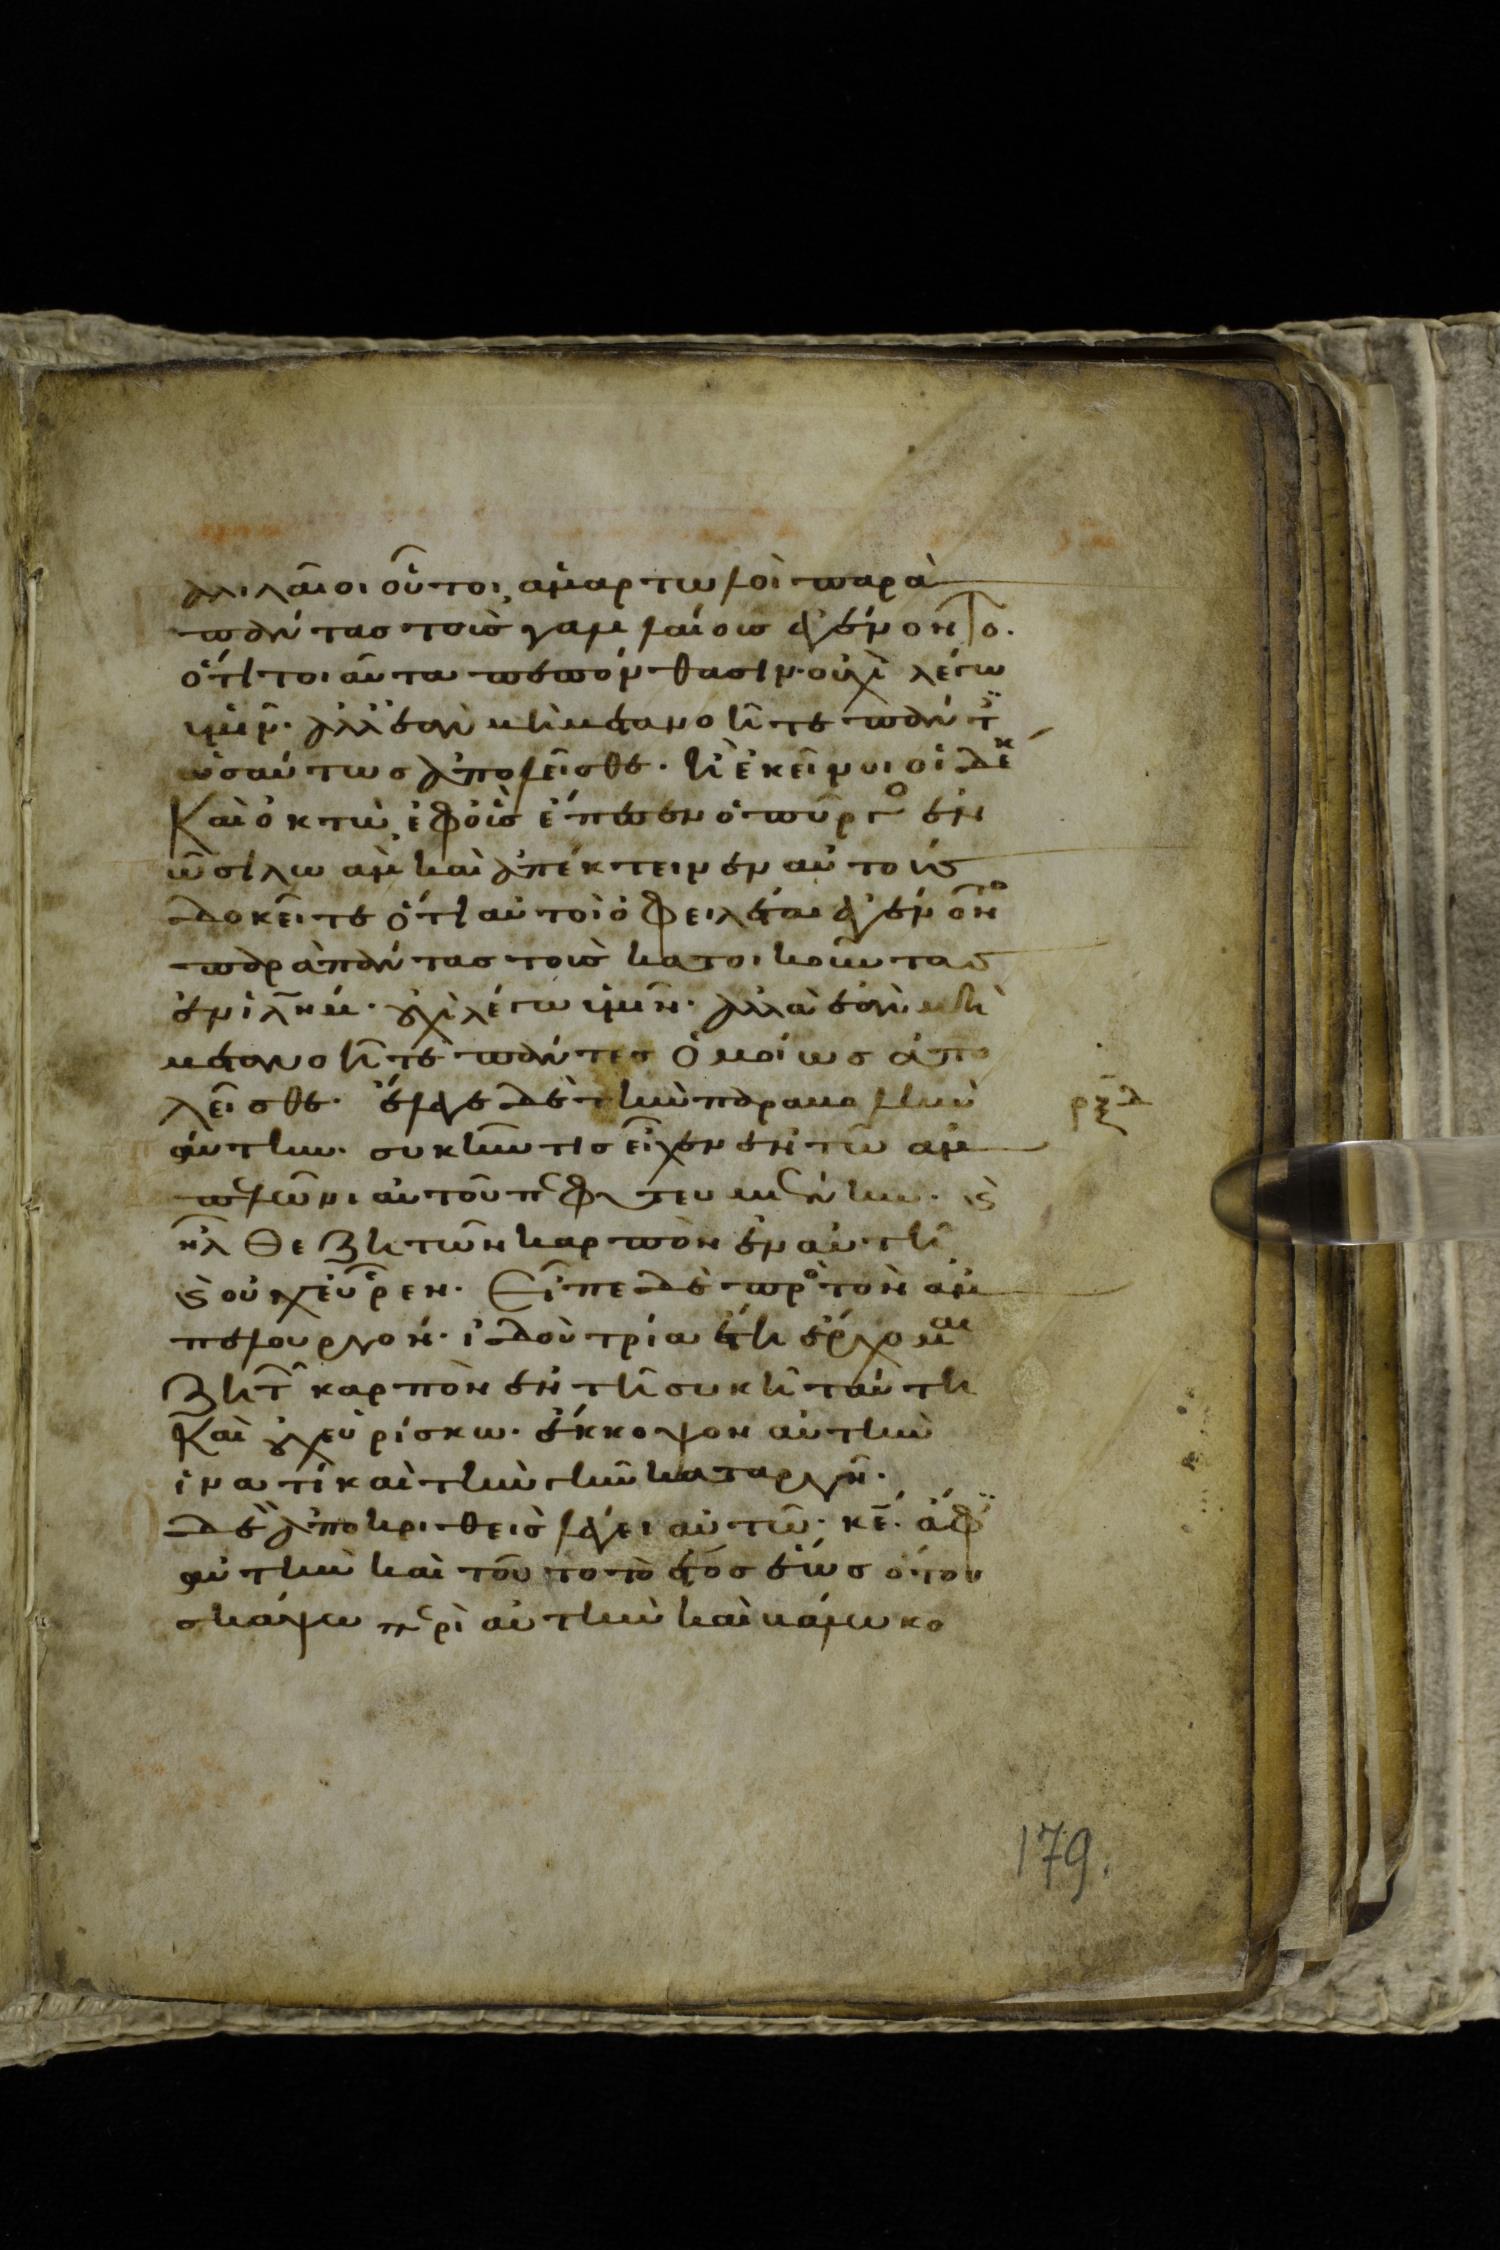 λιλαῖοι οὗτοι ἁμαρτωλοὶ παρὰ
πάντας τοὺς γαλιλαίους ἐγένοντο·
ὅτι τοιαῦτα πεπόνθασιν· οὐχὶ λέγω
ὑμῖν· ἀλλ' ἐὰν μὴ μετανοῆτε πάντ
ὡσαύτως ἀπολεῖσθε· ἢ ἐκεῖνοι οἱ δεκ
καὶ ὀκτὼ ἐφ' οὓς ἔπεσεν ὁ πύργο ἐν
τῶ σιλωάμ καὶ ἀπέκτεινεν αὐτούς
δοκεῖτε ὅτι αὐτοὶ ὀφειλέται ἐγένοντο
παρὰ πάντας τοὺς κατοικοῦντας
ἐν ἱλῆμ· οὐχὶ λέγω ὑμῖν· ἀλλὰ ἐὰν μὴ
μετανοῆτε πάντες ὁμοίως ἀπο
λεῖσθε· ἔλεγε δὲ τὴν παραβολὴν
ταύτην· συκῆν τις εἶχεν ἐν τῶ ἀμ
πελῶνι αὐτοῦ πεφυτευμένην· καὶ
ἦλθε ζητῶν καρπὸν ἐν αὐτῆ
καὶ οὐχ εὗρεν· Εἶπε δὲ πρὸ τὸν ἀμ
πελουργόν· ἰδοὺ τρία ἔτη ἔρχομαι
ζητῶ καρπὸν ἐν τῆ συκῆ ταύτη
Καὶ οὐχ εὑρίσκω· ἔκκοψον αὐτὴν
ἵνα τί καὶ τὴν γῆν καταργῆ·
δὲ ἀποκριθεὶς λέγει αὐτῶ· κε· ἄφ
αὐτὴν καὶ τοῦτο τὸ ἔτος ἕως ὅτου
σκάψω περὶ αὐτὴν καὶ βάλω κο
ρξδ
179.